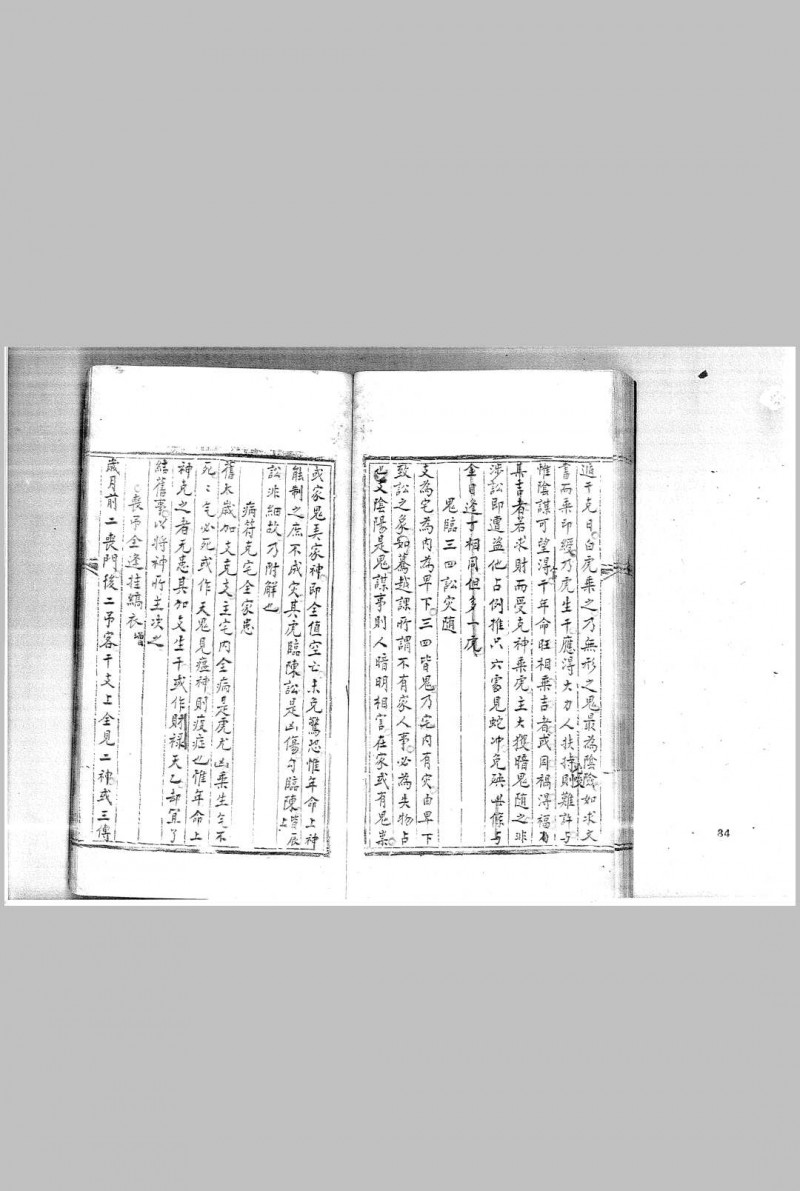 遁干克日白虎乘之乃無形之鬼最為陰險如求文
書而乘印綬乃虎生干應得大力人扶持則難許与
惟陰謀可望得干年命旺相乘吉者或因禍得福
其吉者若求財而受克神乘虎主大獲暗鬼隨之非
涉訟即遭盜他占例推只六害見蛇冲免與
全目逢丁相同但多一虎
鬼臨三四訟灾隨
支為宅為內為卑下三四皆鬼乃宅內有灾由卑下
致訟之象如蓦越課所謂不有家人事必為失物占
也又陰陽是鬼謀事則人暗明相官在家或有鬼祟
或家鬼美家神即全值空亡未免驚恐惟年命上神
能制之庶不成灾其虎臨陳訟是凶傷勾臨陳皆辰上
訟非細故乃附解也
病符克宅全家患
舊太歲加支克支主宅內全病是虎尤凶乘生气不
死死气必死或作天鬼見瘟神則疫症也惟年命上
神克之者无恙其加支生干或作財禄天乙却宜了
結舊事以將神所主決之
喪吊全逢挂縞衣增
歲月前二喪門後二吊客干支上全見二神或三傳
84